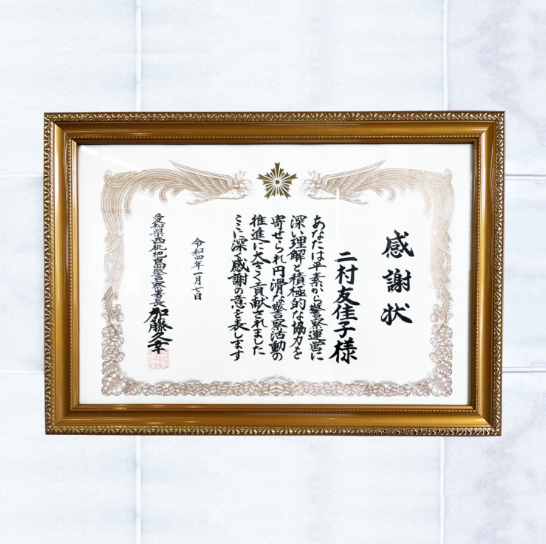 感謝状
二村友佳子様
あなたは平素から警察運営に
深い理解と積極的な協力を
寄せられ円滑な警察活動の
推進に大きく貢献されました
ここに深く感謝の意を表します
令和四年一月七日
愛知県西枇杷島警察署長 加藤久幸